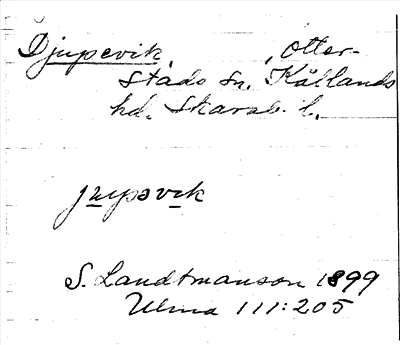 Djupevik, , Otter-
stads sn. Kållands
hd. Skarab. l.
jupsvik
S. Landtmanson 1899
Ulma 111:205